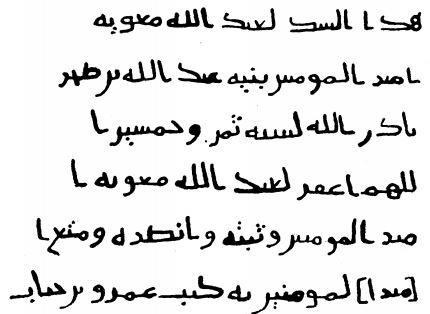 هذا السد لعبد الله معوية
امير المومنين بنيه عبد الله بن صخر
باذن الله لسنة ثمن وخمسين ا
للهم اغفر لعبد الله معوية ا
مير المومنين وثبته وانصره ومتع ا
[مير ا]لمومنين به كتب عمرو بن حباب